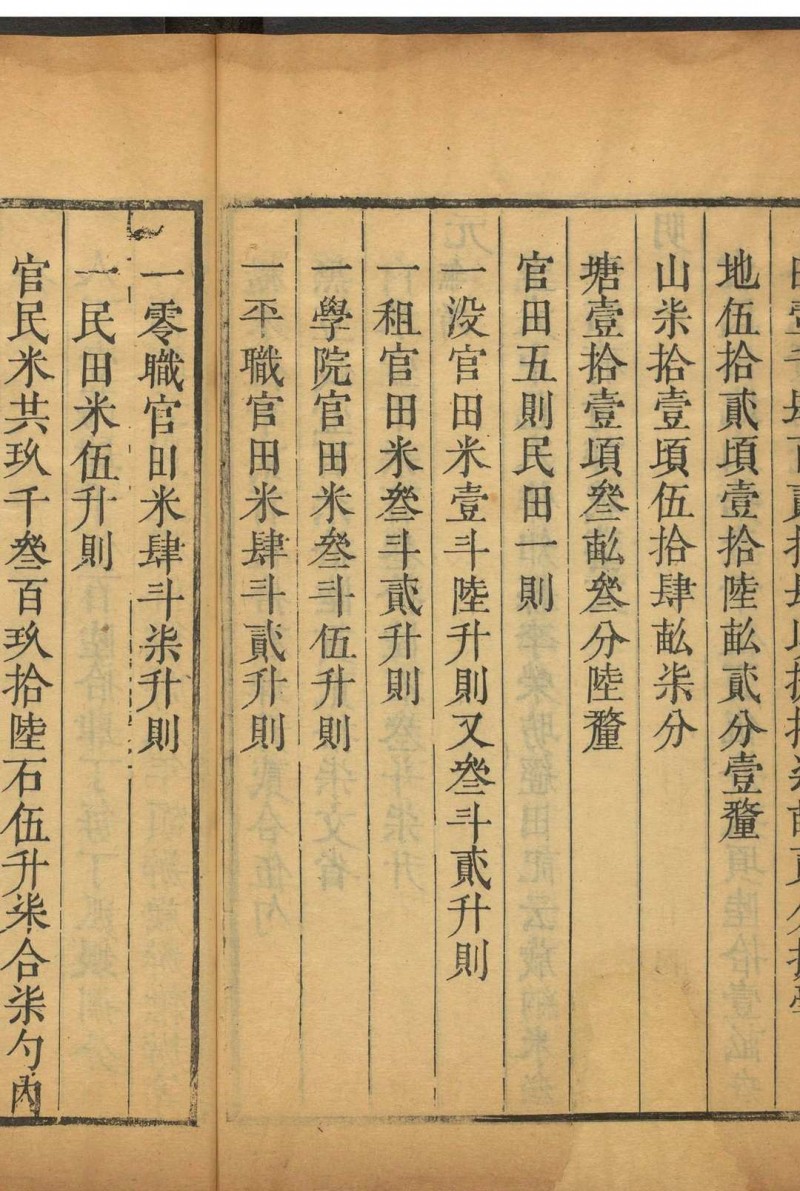 地伍拾貳頃壹拾陸畝貳分壹釐
山柒拾壹頃伍拾肆畝柒分
塘壹拾壹頃叄畝叄分陸釐
官田五則民田一則
一没官田米壹斗陸升則又叄斗貳升則
一租官田米叄斗貳升則
一學院官田米叄斗伍升則
一平職官田米肆斗貳升則
一零職官田米肆斗柒升則
一民田米伍升則
官民米共玖千叄百玖拾陸石伍升柒合柒勺內